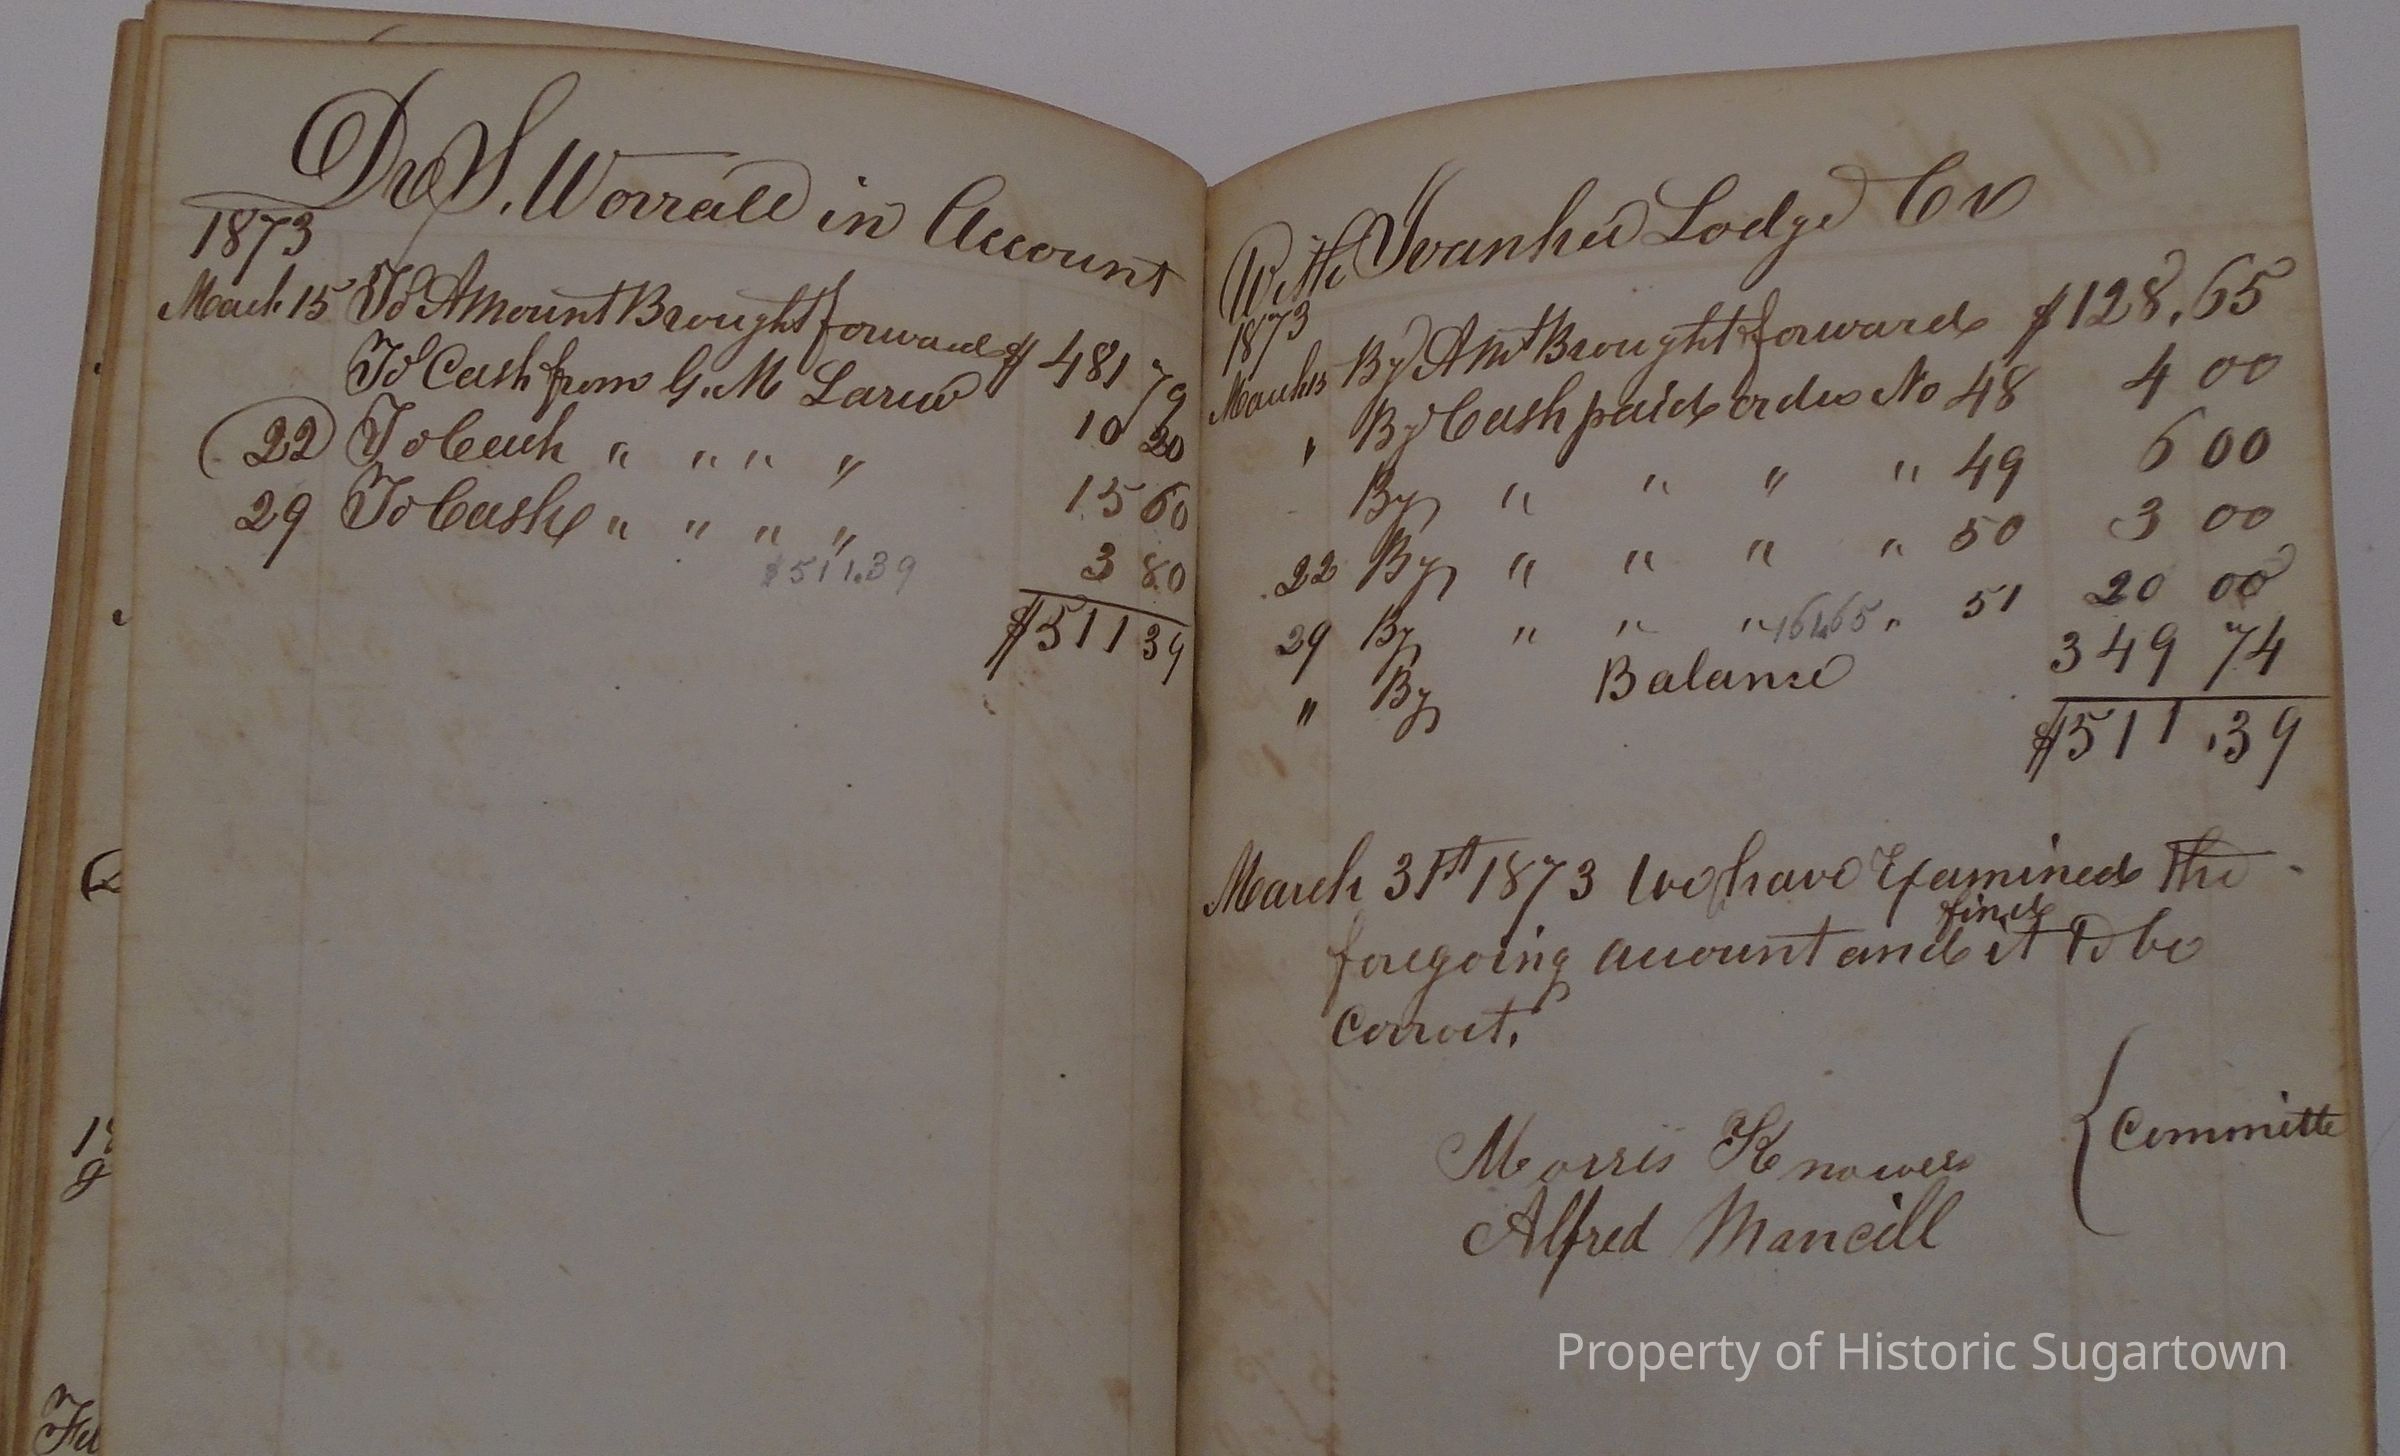 Dr S. Worrall in Account
1873
March 15 To Amount Brought forward $ 481 79
To Cash from G. M Larue 10 20
22 To Cash " " " " 15 60
29 To Cash " " " " 3 80
$511.39
$511 39
With Ivanhoe Lodge Cr
1873
March 15 By Amt Brought forward $128.65
" By Cash paid order No 48 4 00
By " " " " 49 6 00
22 By " " " " 50 3 00
29 By " " " " 51 20 00
161.65
" By Balance 349 74
$511.39
March 31st 1873 We have Examined the
find
foregoing account and it to be
Correct.
Morris
Alfred Mancill
Committe
Property of Historic Sugartown